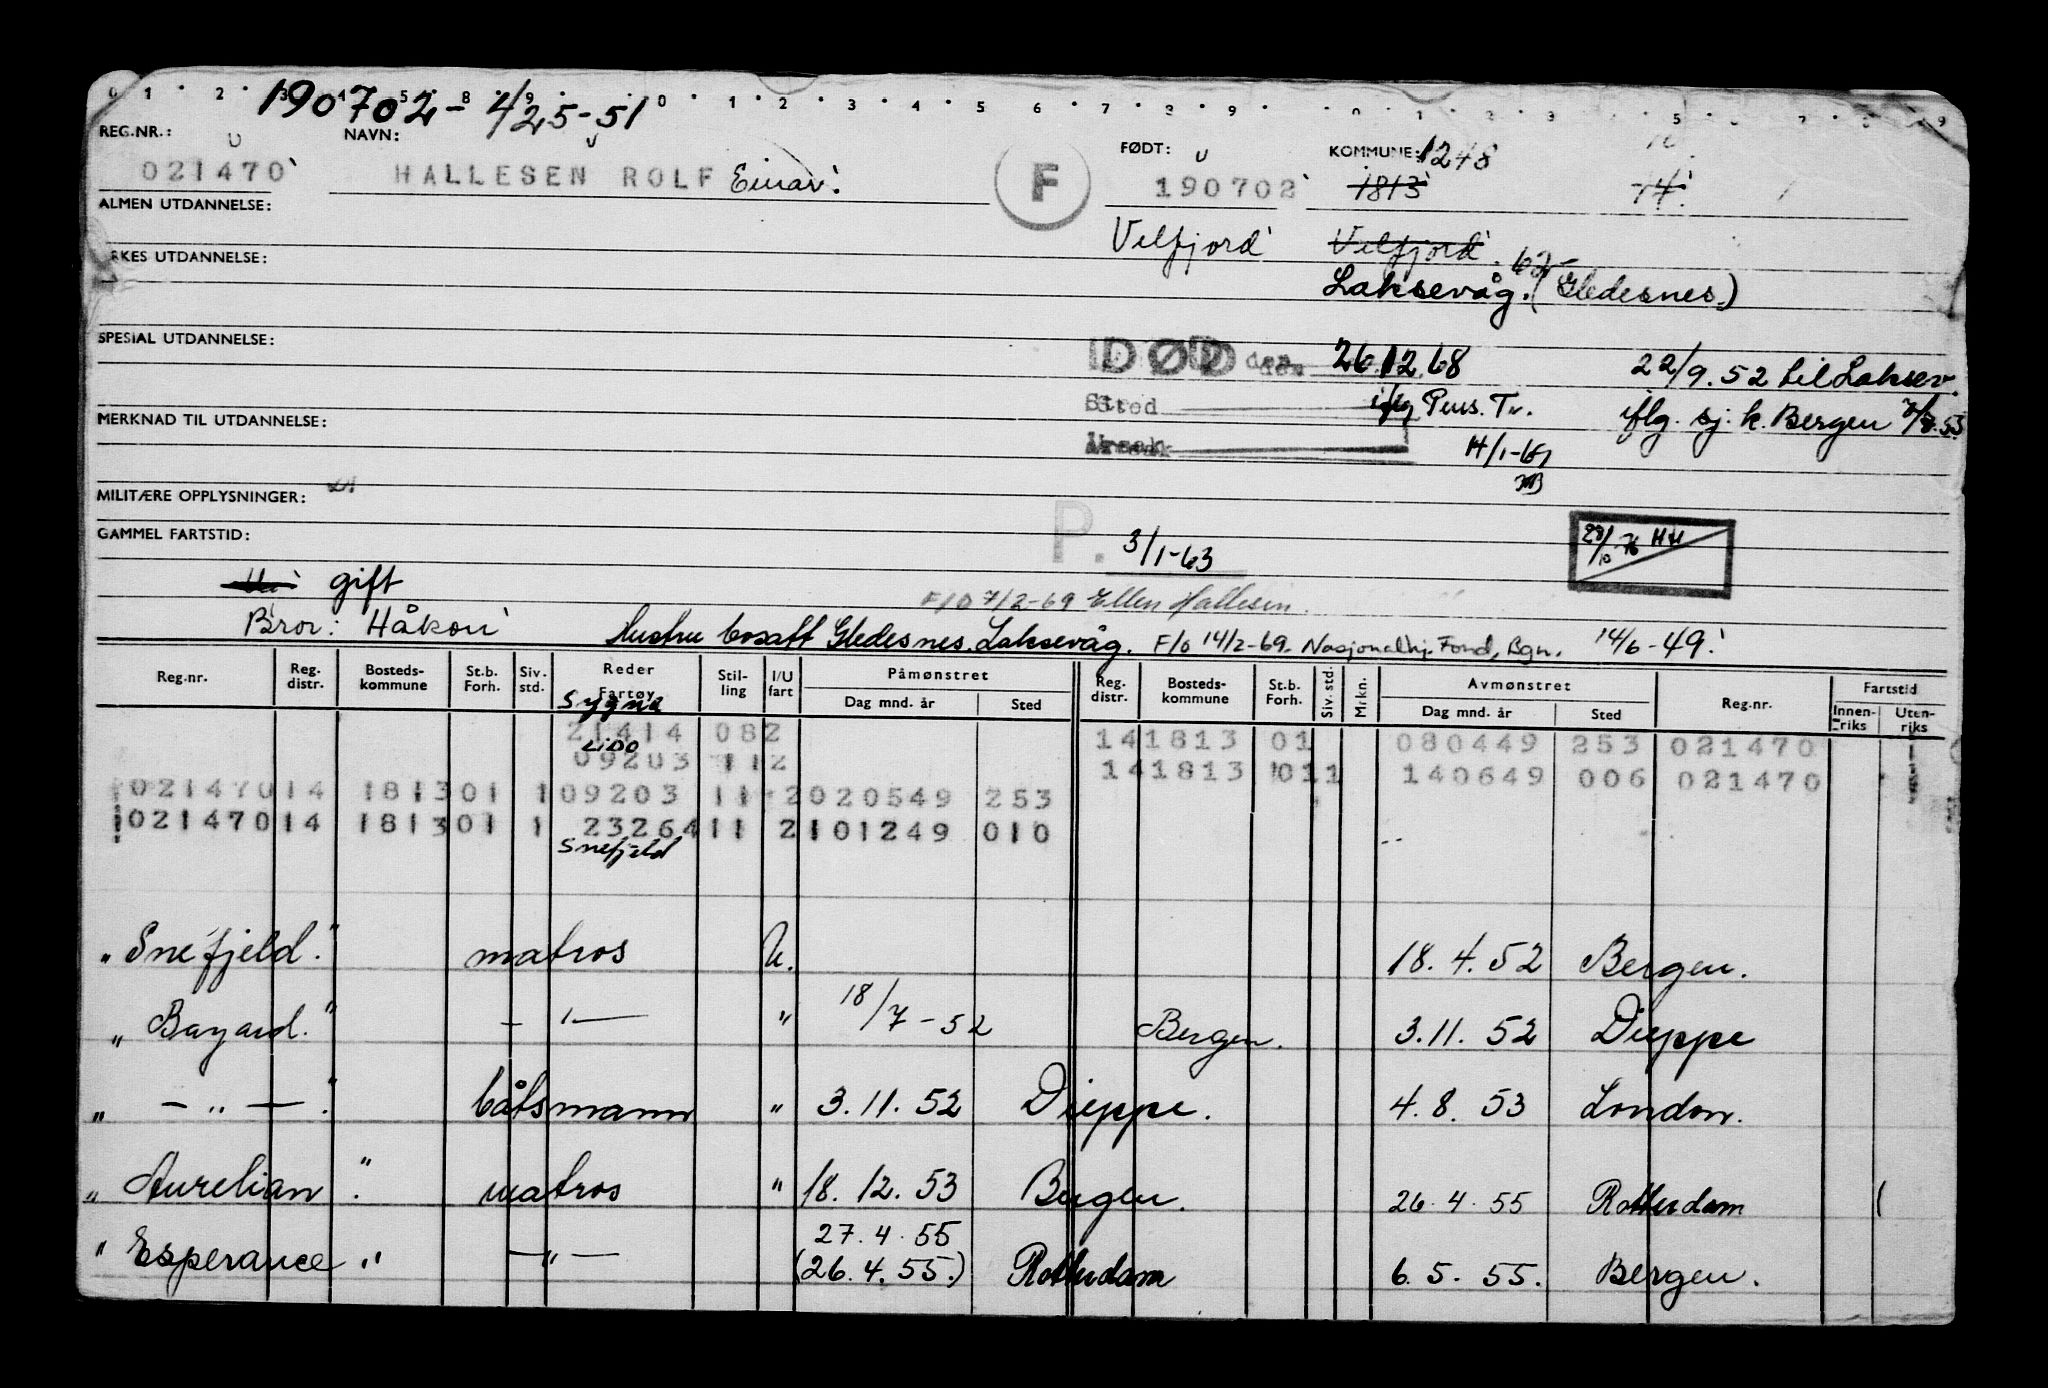 190702 - 425-51
REG.NR.: NAVN: FØDT: KOMMUNE: 1248
021470 HALLESEN ROLF Einar. F 190702 1813 14
ALMEN UTDANNELSE:
Velfjord Velfjord
RKES UTDANNELSE: 62
Laksevåg. (Gledesnes.)
SPESIAL UTDANNELSE: DØD den 26.12.68 22/9.52 til Laksev.
Sted iflg Pens. Tr. iflg. sj. k. Bergen
MERKNAD TIL UTDANNELSE: Årsak
14/1-69
MILITÆRE OPPLYSNINGER:
GAMMEL FARTSTID: P. 3/1-63 28/10-76 HH
gift
F/O 7/2-69 Ellen Hallesen.
Bror: Håkon Hustru bosatt Gledesnes. Laksevåg. F/o 14/2-69. Nasjonalhj. Fond, Bgn. 14/6-49.
Reg.nr. Reg. distr. Bosteds-kommune St.b. Forh. Siv. std. Reder Fartøy Stil-ling I/U fart Påmønstret Dag mnd. år Sted Reg. distr. Bosteds-kommune St.b. Forh. Siv. std. Mrkn. Avmønstret Dag mnd. år Sted Reg.nr. Fartstid Innen-riks Uten-riks
Sygna
21414 082 141813 01 080449 253 021470
LIDO
09203 112 141813 011 140649 006 021470
021470 14 1813 01 1 09203 11 2 020549 253
021470 14 1813 01 1 23264 11 2 101249 010
Snefjeld
" Snefjeld." matros U. 18. 4. 52 Bergen.
" Bayard." - " - " 18/7-52 Bergen. 3. 11. 52 Dieppe
" - " - ." båtsmann " 3. 11. 52 Dieppe. 4. 8. 53 London.
" Aurelian." matros " 18. 12. 53 Bergen. 26. 4. 55 Rotterdam
27. 4. 55
" Esperance." - " - (26. 4. 55.) Rotterdam 6. 5. 55. Bergen.